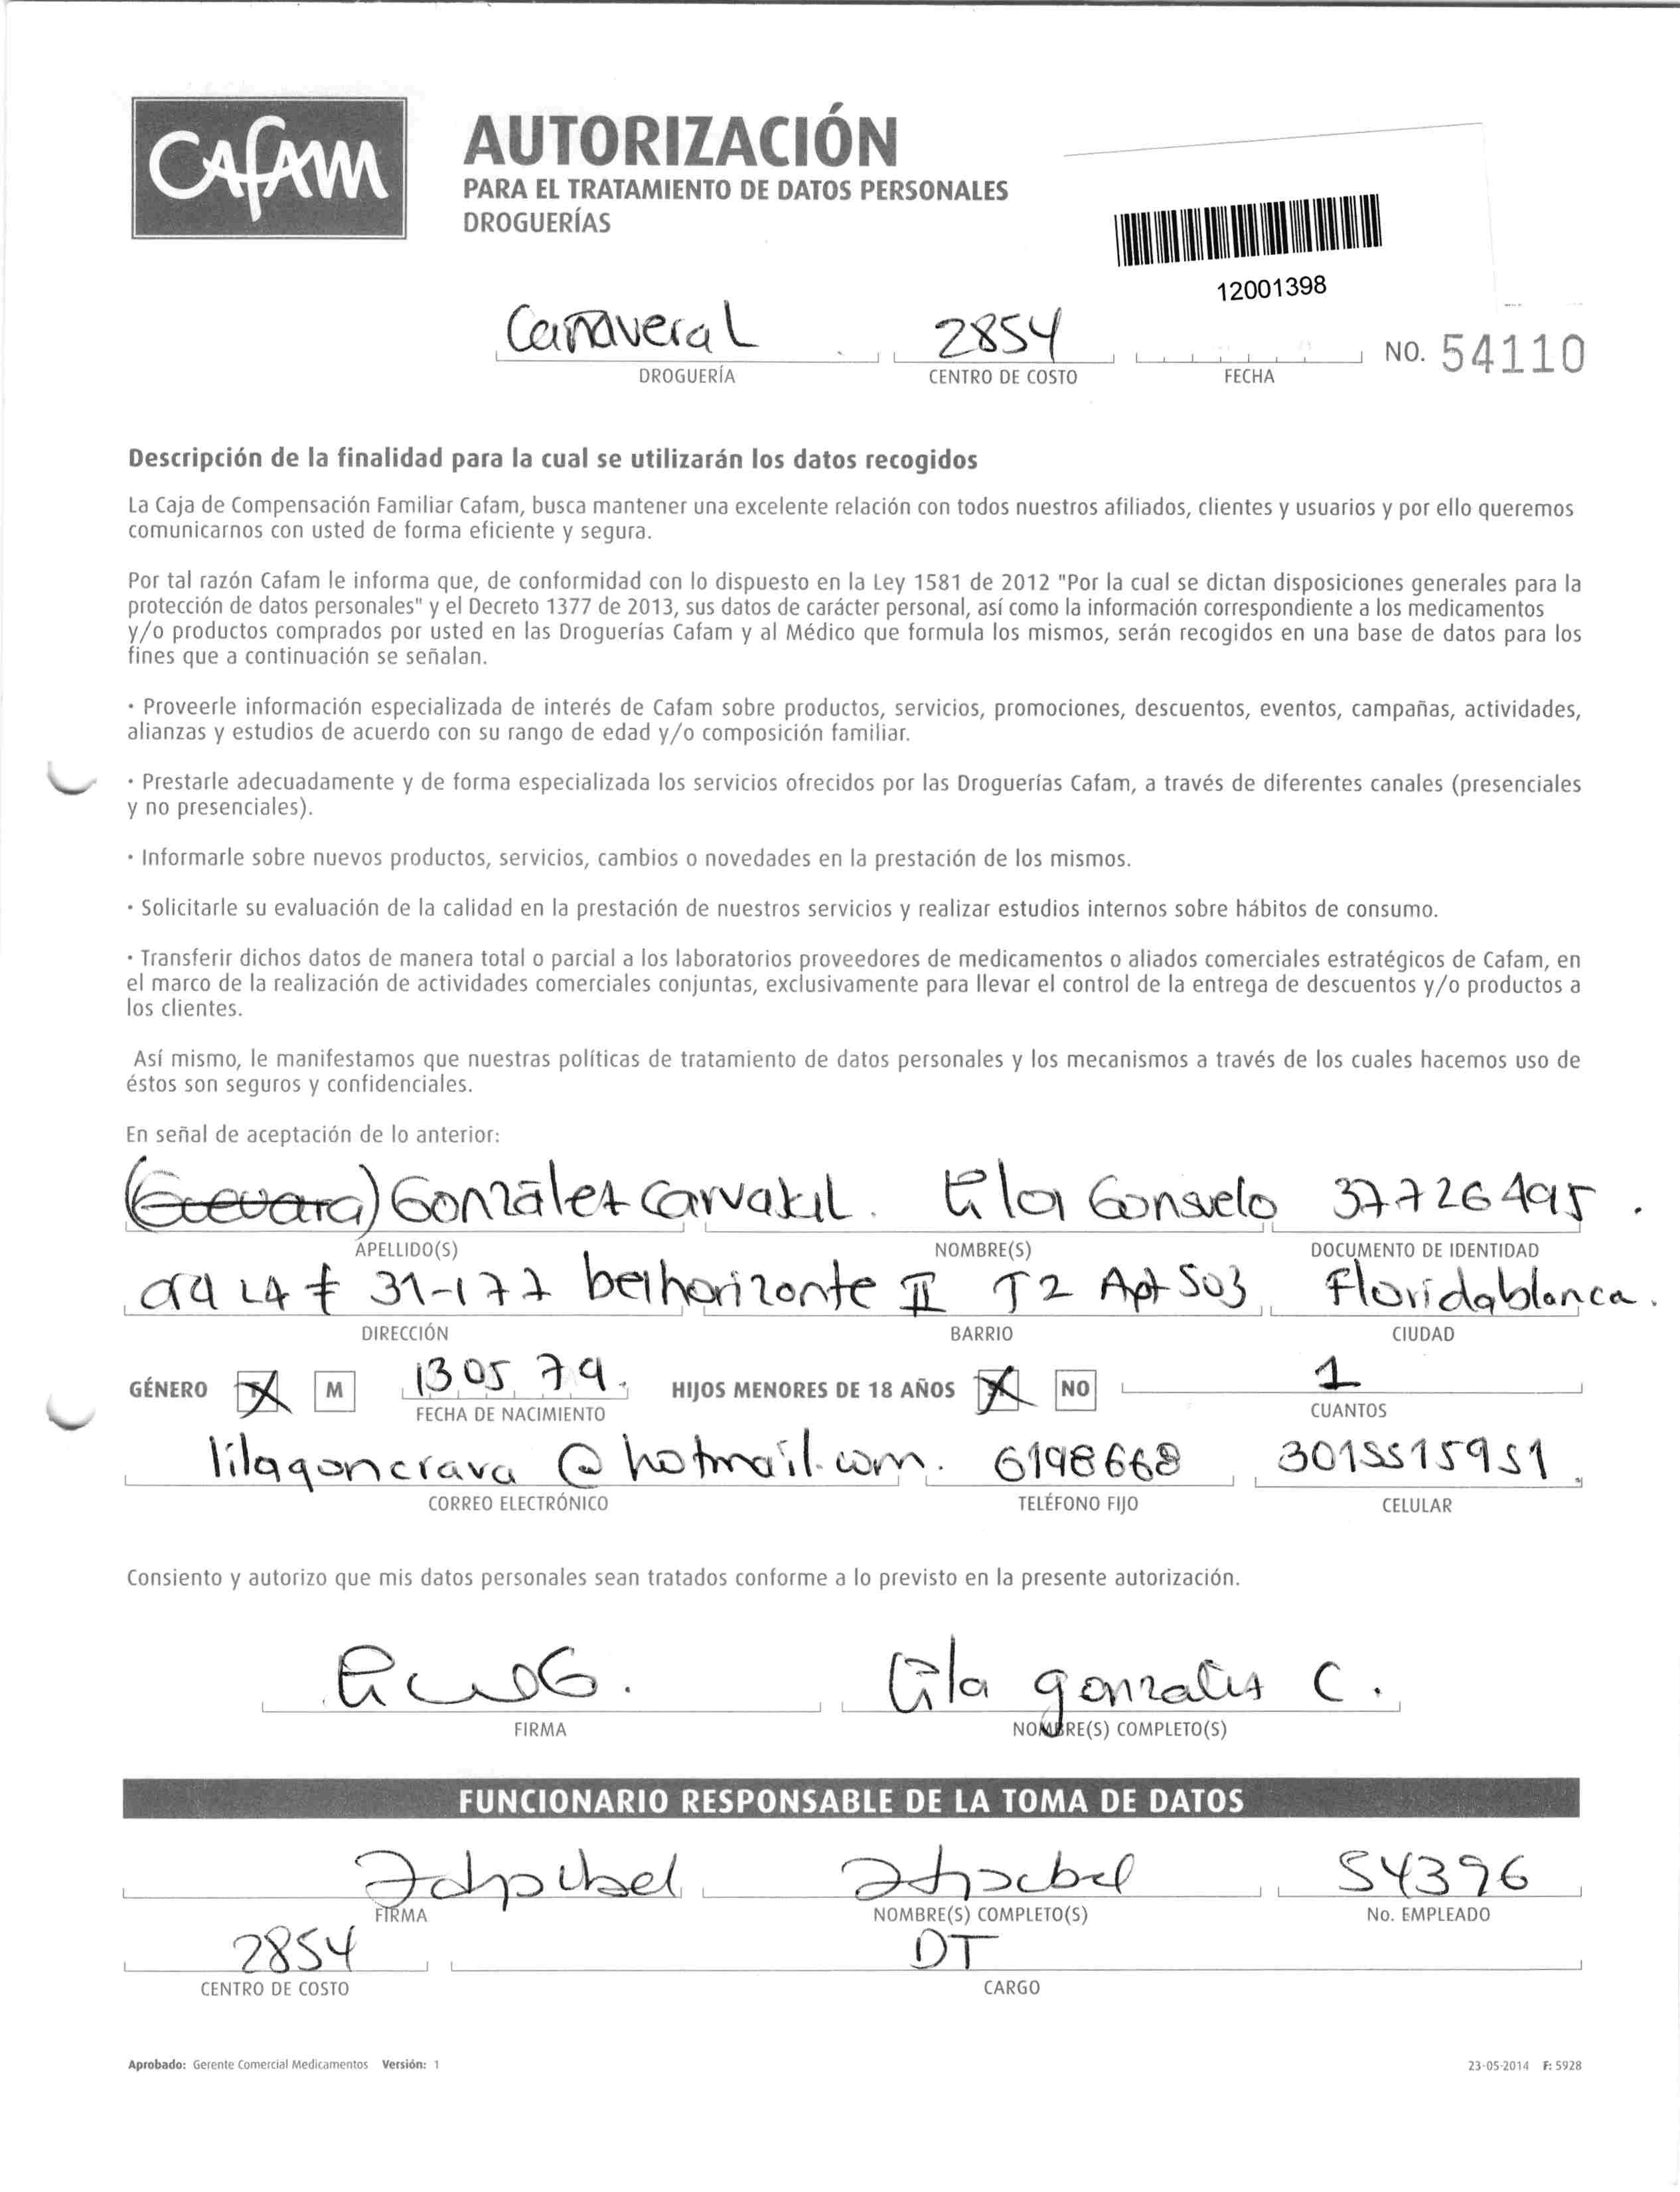 Cafam
AUTORIZACIÓN
PARA EL TRATAMIENTO DE DATOS PERSONALES
DROGUERÍAS
12001398
Cañaveral 2854
NO. 54110
DROGUERÍA CENTRO DE COSTO FECHA
Descripción de la finalidad para la cual se utilizarán los datos recogidos
La Caja de Compensación Familiar Cafam, busca mantener una excelente relación con todos nuestros afiliados, clientes y usuarios y por ello queremos
comunicarnos con usted de forma eficiente y segura.
Por tal razón Cafam le informa que, de conformidad con lo dispuesto en la Ley 1581 de 2012 "Por la cual se dictan disposiciones generales para la
protección de datos personales" y el Decreto 1377 de 2013, sus datos de carácter personal, así como la información correspondiente a los medicamentos
y/o productos comprados por usted en las Droguerías Cafam y al Médico que formula los mismos, serán recogidos en una base de datos para los
fines que a continuación se señalan.
· Proveerle información especializada de interés de Cafam sobre productos, servicios, promociones, descuentos, eventos, campañas, actividades,
alianzas y estudios de acuerdo con su rango de edad y/o composición familiar.
· Prestarle adecuadamente y de forma especializada los servicios ofrecidos por las Droguerías Cafam, a través de diferentes canales (presenciales
y no presenciales).
· Informarle sobre nuevos productos, servicios, cambios o novedades en la prestación de los mismos.
· Solicitarle su evaluación de la calidad en la prestación de nuestros servicios y realizar estudios internos sobre hábitos de consumo.
· Transferir dichos datos de manera total o parcial a los laboratorios proveedores de medicamentos o aliados comerciales estratégicos de Cafam, en
el marco de la realización de actividades comerciales conjuntas, exclusivamente para llevar el control de la entrega de descuentos y/o productos a
los clientes.
Así mismo, le manifestamos que nuestras políticas de tratamiento de datos personales y los mecanismos a través de los cuales hacemos uso de
éstos son seguros y confidenciales.
En señal de aceptación de lo anterior:
(Guevara) González Carvajal. Lila Consuelo 37726495.
APELLIDO(S) NOMBRE(S) DOCUMENTO DE IDENTIDAD
31-177 belhorizonte II T2 Apt 503 Floridablanca.
DIRECCIÓN BARRIO CIUDAD
GÉNERO M 130579. HIJOS MENORES DE 18 AÑOS NO 1
FECHA DE NACIMIENTO CUANTOS
lilagoncrava@hotmail.com. 6198668 3015515951
CORREO ELECTRÓNICO TELÉFONO FIJO CELULAR
Consiento y autorizo que mis datos personales sean tratados conforme a lo previsto en la presente autorización.
Lila gonzalez C.
FIRMA NOMBRE(S) COMPLETO(S)
FUNCIONARIO RESPONSABLE DE LA TOMA DE DATOS
54396
FIRMA NOMBRE(S) COMPLETO(S) No. EMPLEADO
2854 DT
CENTRO DE COSTO CARGO
Aprobado: Gerente Comercial Medicamentos Versión: 1
23-05-2014 F: 5928